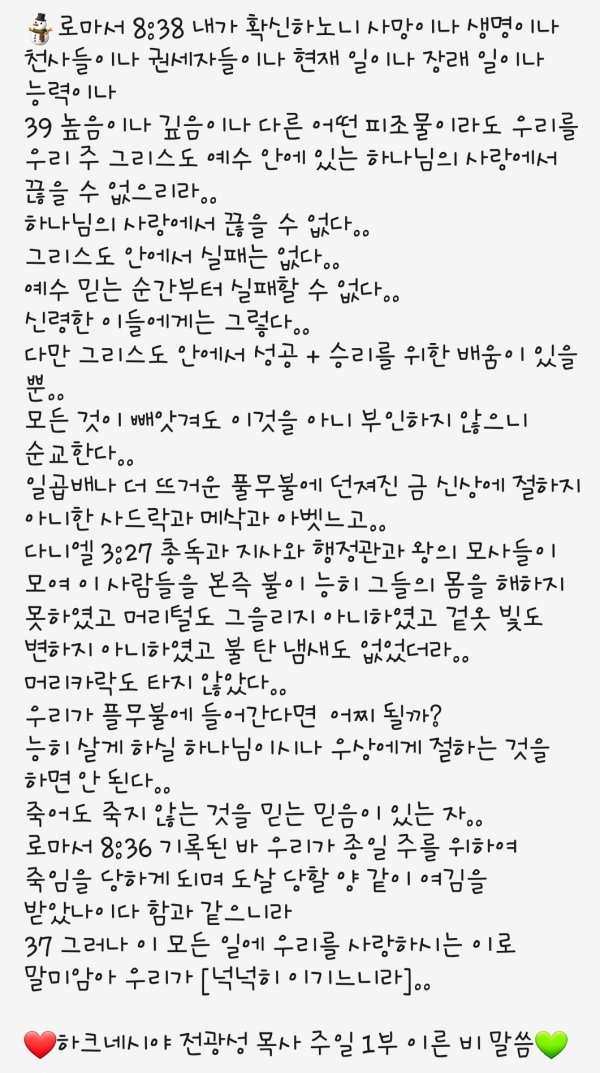 ⛄로마서 8:38 내가 확신하노니 사망이나 생명이나
천사들이나 권세자들이나 현재 일이나 장래 일이나
능력이나
39 높음이나 깊음이나 다른 어떤 피조물이라도 우리를
우리 주 그리스도 예수 안에 있는 하나님의 사랑에서
끊을 수 없으리라。。
하나님의 사랑에서 끊을 수 없다。。
그리스도 안에서 실패는 없다。。
예수 믿는 순간부터 실패할 수 없다。。
신령한 이들에게는 그렇다。。
다만 그리스도 안에서 성공 + 승리를 위한 배움이 있을
뿐。。
모든 것이 빼앗겨도 이것을 아니 부인하지 않으니
순교한다。。
일곱배나 더 뜨거운 풀무불에 던져진 금 신상에 절하지
아니한 사드락과 메삭과 아벳느고。。
다니엘 3:27 총독과 지사와 행정관과 왕의 모사들이
모여 이 사람들을 본즉 불이 능히 그들의 몸을 해하지
못하였고 머리털도 그을리지 아니하였고 겉옷 빛도
변하지 아니하였고 불 탄 냄새도 없었더라。。
머리카락도 타지 않았다。。
우리가 플무불에 들어간다면 어찌 될까?
능히 살게 하실 하나님이시나 우상에게 절하는 것을
하면 안 된다。。
죽어도 죽지 않는 것을 믿는 믿음이 있는 자。。
로마서 8:36 기록된 바 우리가 종일 주를 위하여
죽임을 당하게 되며 도살 당할 양 같이 여김을
받았나이다 함과 같으니라
37 그러나 이 모든 일에 우리를 사랑하시는 이로
말미암아 우리가 [넉넉히 이기느니라]。。
❤️하크네시야 전광성 목사 주일 1부 이른 비 말씀💚